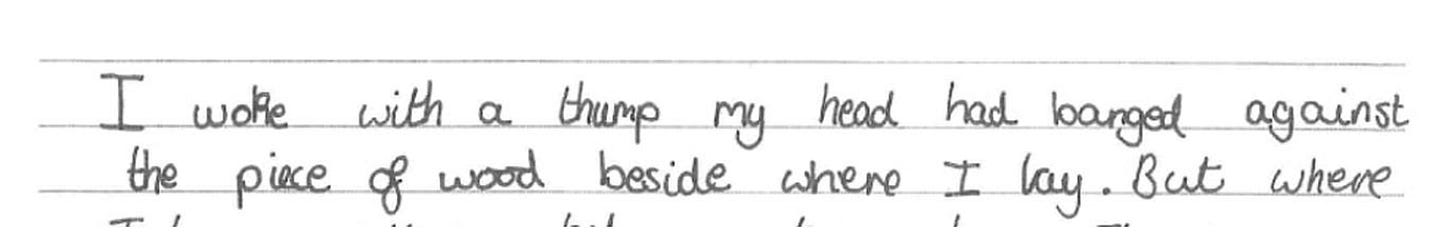 I woke with a thump my head had banged against
the piece of wood beside where I lay. But where